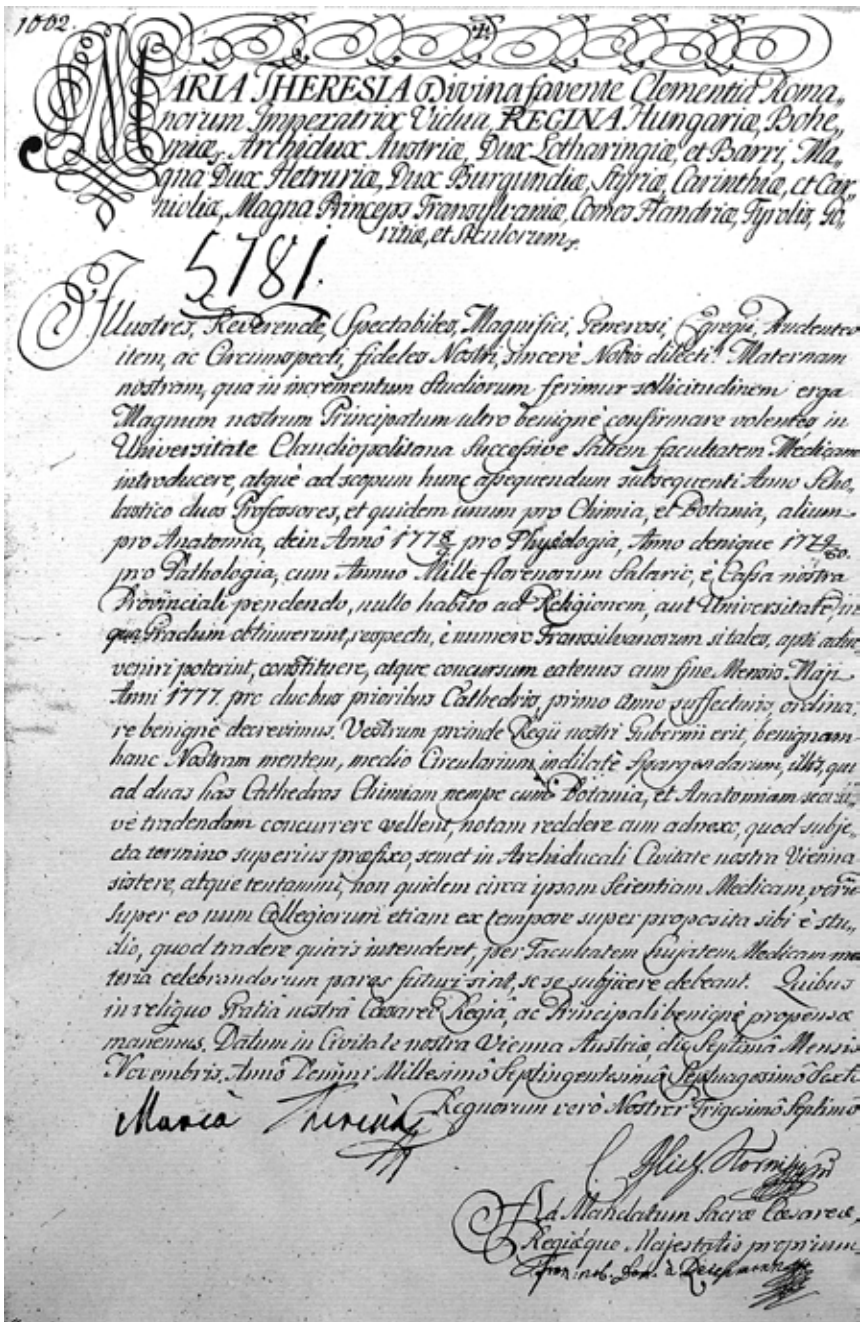 1002.
MARIA THERESIA Divina favente Clementia Roma„
norum Imperatrix Vidua, REGINA Hungariæ, Bohe„
miæ, Archidux Austriæ, Dux Lotharingiæ, et Barri, Ma„
gna Dux Hetruriæ, Dux Burgundiæ, Styriæ, Carinthiæ, et Car„
nioliæ, Magna Princeps Transylvaniæ, Comes Flandriæ, Tyrolis, Go„
ritiæ, et Siculorum
5781.
Illustres, Reverende, Spectabiles, Magnifici, Generosi, Egregii, Prudentes
item, ac Circumspecti, fideles Nostri, sincerè Nobis dilecti! Maternam
nostram, qua in incrementum Studiorum ferimur sollicitudinem erga
Magnum nostrum Principatum ultro benignè confirmare volentes in
Universitate Claudiopolitana successive saltem facultatem Medicam
introducere, atquè ad scopum hunc assequendum subsequenti Anno Scho„
lastico duos Professores, et quidem unum pro Chimia, et Botania, alium
pro Anatomia, dein Annô 1778/9 pro Physiologia, Anno denique 1779/80.
pro Pathologia, cum Annuo Mille florenorum Salario, è Cassa nostra
Provinciali pendendo, nullo habito ad Religionem, aut Universitate, in
qua Gradum obtinuerunt, respectu, è numero Transsilvanorum si tales, apti adin„
veniri poterint, constituere, atque concursum eatenus cum fine Mensis Maji
Anni 1777. pro duobus prioribus Cathedris, primo Anno suffecturis, ordina„
re benignè decrevimus. Vestrum proinde Regii nostri Gubernii erit, benignam
hanc Nostram mentem, medio Circularium indilatè spargendarum, illis, qui
ad duas has Cathedras Chimiam nempe cum Botania, et Anatomiam
vè tradendam concurrere vellent, notam reddere cum adnexo, quod subje„
cta termino superius præfixo, semet in Archiducali Civitate nostra Vienna
sistere, atque tentamini, non quidem circa ipsam Scientiam Medicam, verum
super eo num Collegiorum etiam ex tempore super proposita sibi è stu„
dio, quod tradere quivis intenderet, per Facultatem hujatem Medicam ma
teria celebrandorum pares futuri sint, se se subjicere debeant. Quibus
in reliquo Gratiâ nostrâ Cæsareo Regiâ, ac Principali benignè propensæ
manemus. Datum in Civitate nostra Vienna Austriæ die Septimâ Mensis
Novembris, Annô Domini Millesimô Septingentesimô Septuagesimô Sexto
Regnorum verò Nostror Trigesimô Septimô
Maria Theresia
Ad Mandatum Sacræ Cæsareæ,
Regiæque Majestatis proprium